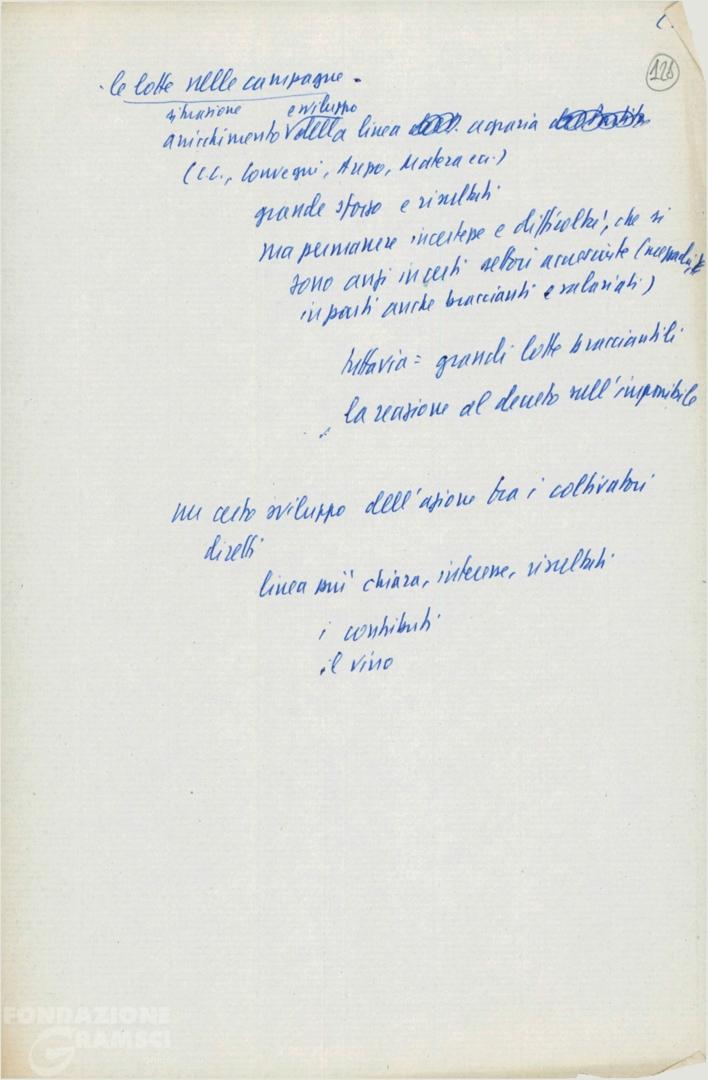 126
le lotte nelle campagne.
situazione e sviluppo
arricchimento della linea agraria
(C.C., Convegni, Matera ecc.)
grande sforzo e risultati
ma permanere incertezze e difficoltà, che si
sono anzi in certi settori accresciute
in parti anche braccianti e salariati)
tuttavia = grandi lotte bracciantili
la reazione al decreto sull'imponibile
un certo sviluppo dell'azione tra i coltivatori
diretti
linea più chiara, interesse, risultati
i contributi
il vino
FONDAZIONE
GRAMSCI